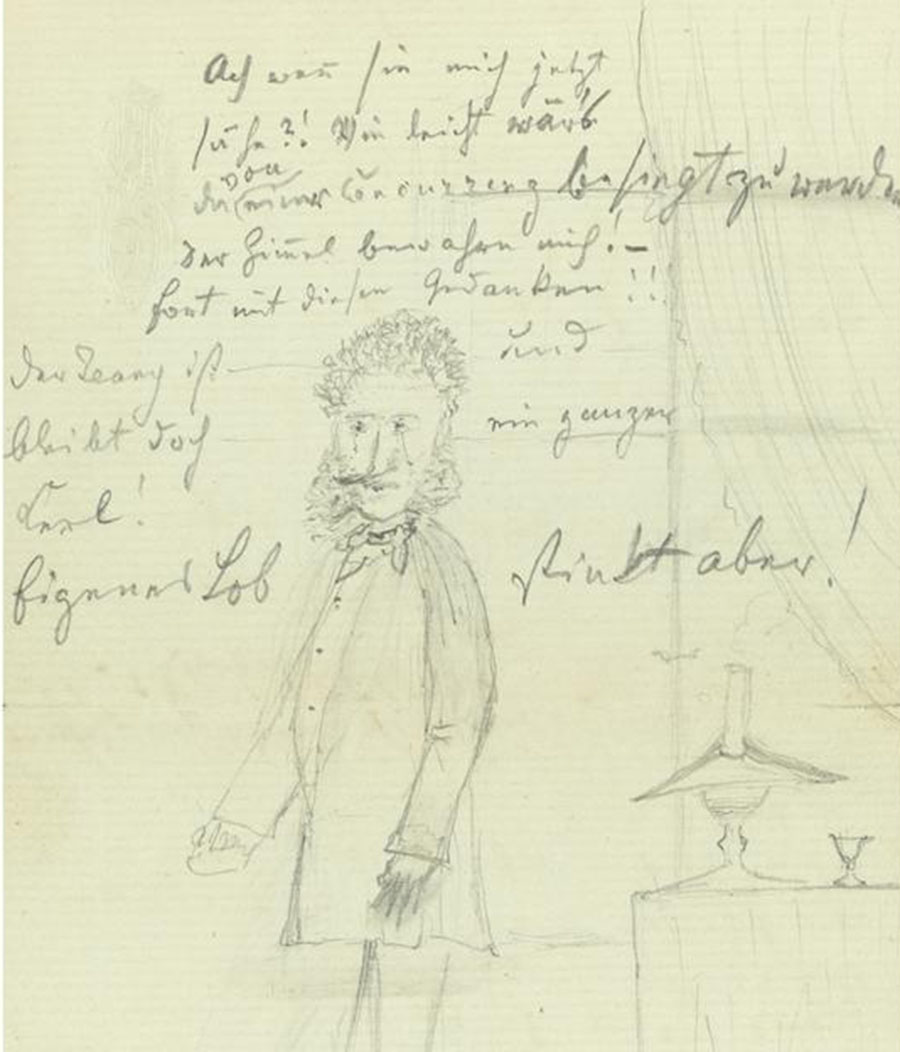 Ach wen̄ sie mich jetzt
sähe?! Wie leicht wär's
von
einer Concurrenz besiegt zu werden
Der Him̄el bewahre mich! –
fort mit diesen Gedanken!!
Der ist und
bleibt doch ein ganzer
Kerl!
Eigenes Lob stinkt aber!